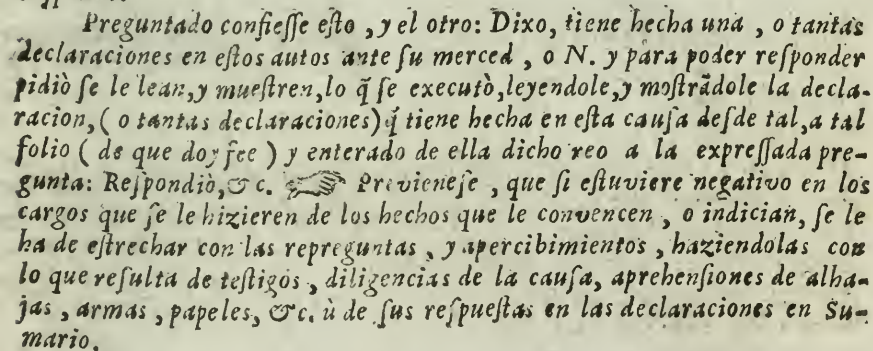 Preguntado confieſſe eſto , y el otro: Dixo, tiene hecha una , o tantas
declaraciones en eſtos autos ante ſu merced , o N. y para poder reſponder
pidiò ſe le lean, y mueſtren, lo q̃ ſe executò, leyendole, y moſtrãdole la decla-
racion, ( o tantas declaraciones) q̃ tiene hecha en eſta cauſa deſde tal, a tal
folio ( de que doy fee ) y enterado de ella dicho reo a la expreſſada pre-
gunta: Reſpondiò, &c. ☞ Previeneſe , que ſi eſtuviere negativo en los
cargos que ſe le hizieren de los hechos que le convencen , o indician, ſe le
ha de eſtrechar con las repreguntas , y apercibimientos , haziendolas con
lo que reſulta de teſtigos , diligencias de la cauſa, aprehenſiones de alha-
jas , armas , papeles, &c. ù de ſus reſpueſtas en las declaraciones en Su-
mario.